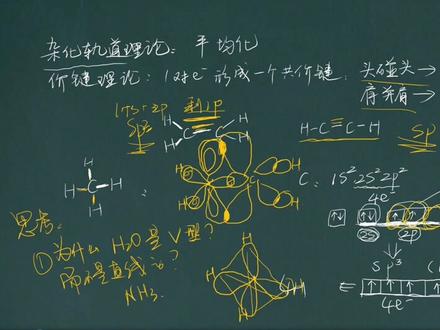 杂化轨道理论:平均化
价键理论:1对e⁻形成一个共价键.头碰头→
肩并肩→
1个S+2P 剩1P
SP²
H-C≡C-H SP
H H
C C
H H
C: 1S² 2S² 2P²
4e⁻
H
H-C-H
H
2S 2P
思考:
①为什么 H₂O 是 V型?
而不是直线记?
NH₃.
SP³
4e⁻
H
H H
H